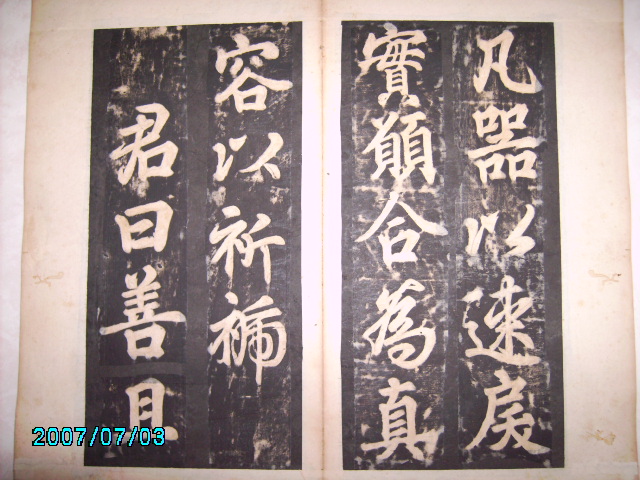 凡器以速戾
實願合為真
容以祈福
君曰善且
2007/07/03